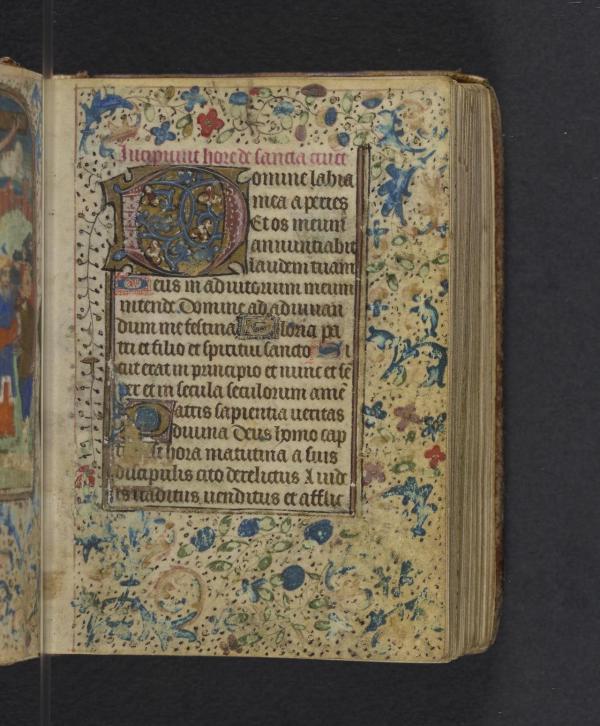 Incipiunt hore de sancta cruce
Domine labia
mea aperies
Et os meum
annuntiabit
laudem tuam
Deus in adiutorium meum
intende Domine ad adiuuan
dum me festina Gloria pa
tri et filio et spiritui sancto Si
cut erat in principio et nunc et sē
per et in secula seculorum amē
Patris sapientia ueritas
diuina Deus homo cap
hora matutina a suis
discipulis cito derelictus A iude
is traditus uenditus et afflic